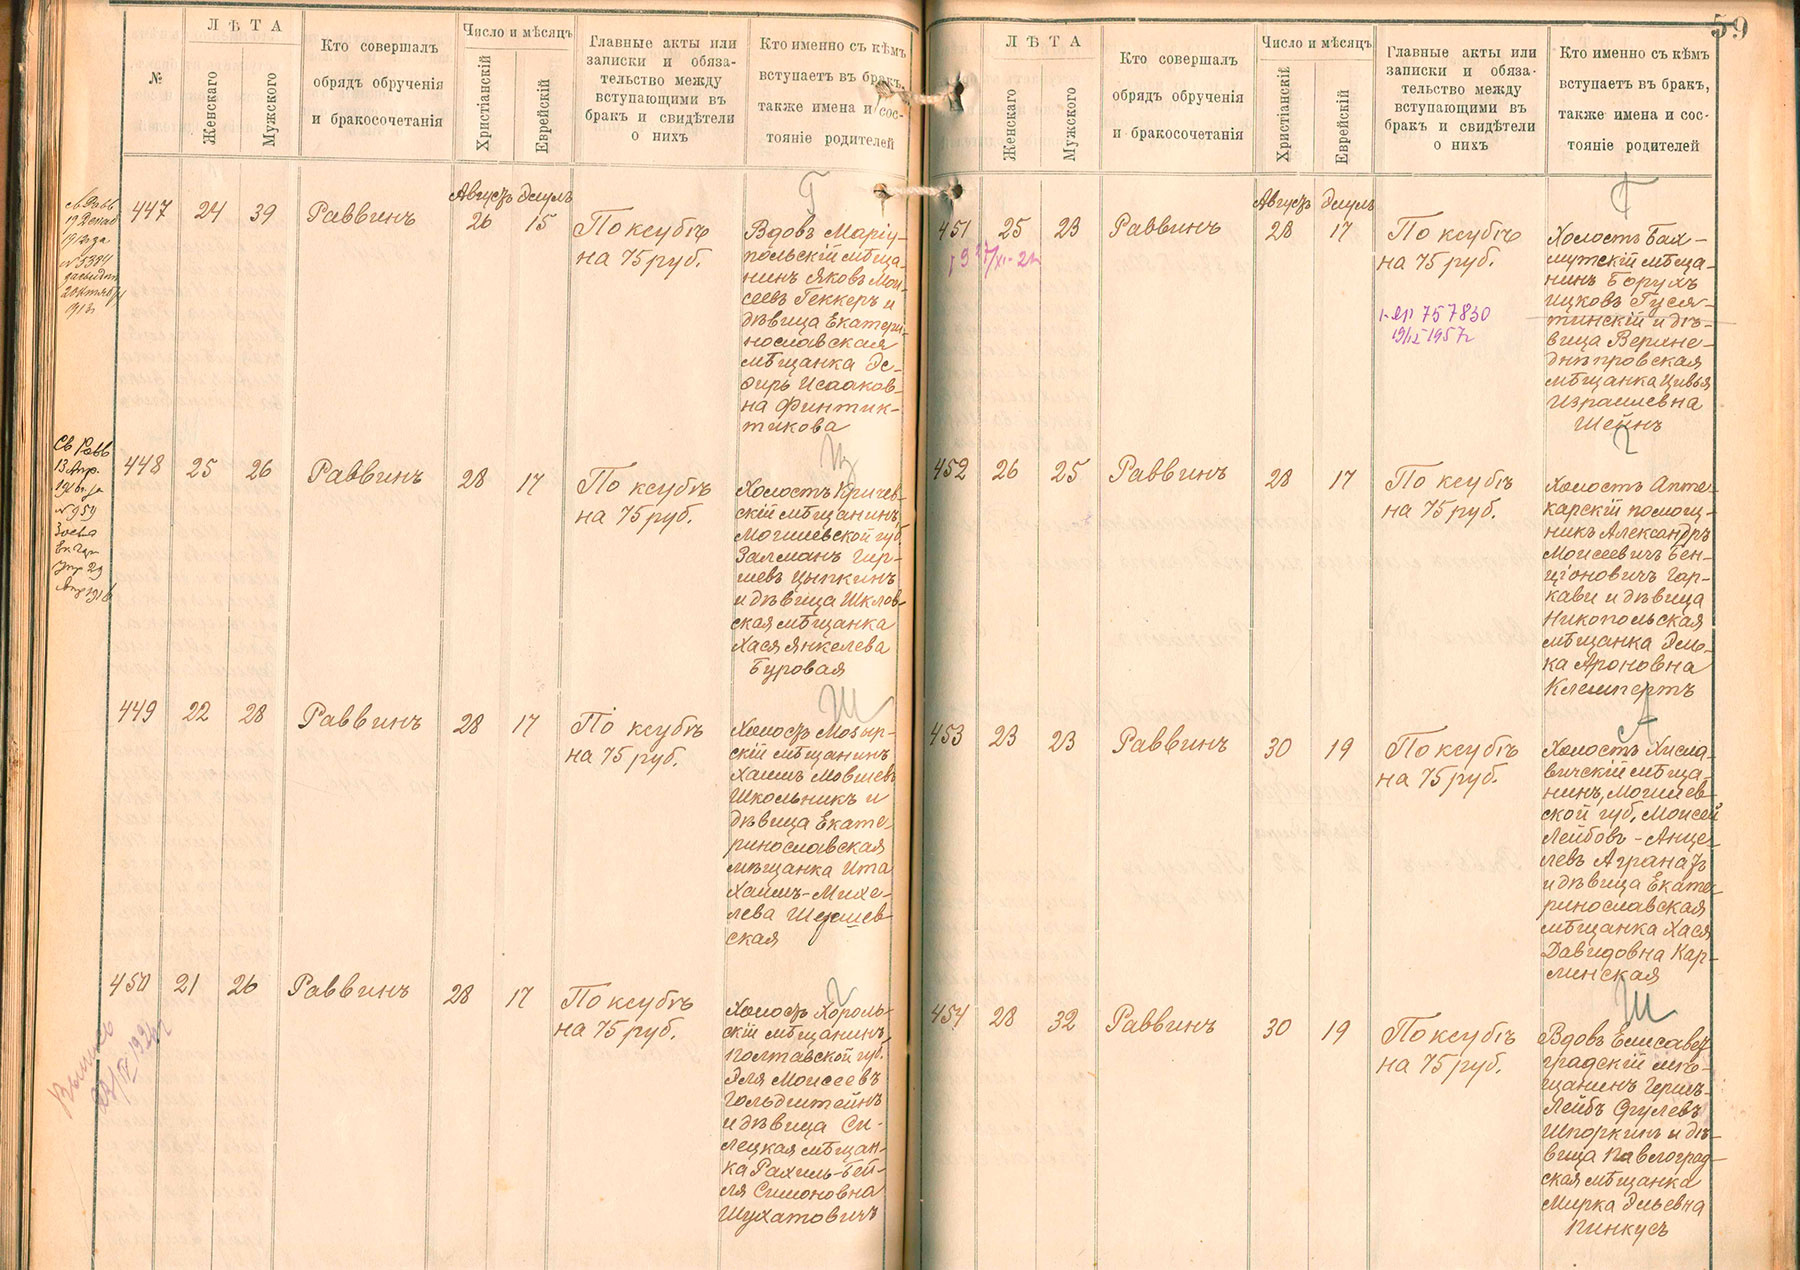 №
ЛѢТА
Женскаго
Мужского
Кто совершалъ
обрядъ обрученія
и бракосочетанія
Число и мѣсяцъ
Христіанскій
Еврейскій
Главные акты или
записки и обяза-
тельство между
вступающими въ
бракъ и свидѣтели
о нихъ
Кто именно съ кѣмъ
вступаетъ въ бракъ,
также имена и сос-
тояніе родителей
Г
447 24 39 Раввинъ
Августъ Элулъ
26 15
По ксубѣ
на 75 руб.
Вдовъ Маріу-
польскій мѣща-
нинъ Яковъ Мои-
сеевъ Геккеръ и
дѣвица Екатери-
нославская
мѣщанка Эс-
фирь Исааков-
на Финтик-
тикова
448 25 26 Раввинъ 28 17
По ксубѣ
на 75 руб.
Холостъ Кричев-
скій мѣщанинъ,
Могилевской губ.
Залманъ Гир-
шевъ Цыпкинъ
и дѣвица Шклов-
ская мѣщанка
Хася Янкелева
Буровая
Ш
449 22 28 Раввинъ 28 17
По ксубѣ
на 75 руб.
Холостъ Мозыр-
скій мѣщанинъ
Хаимъ Мовшевъ
Школьникъ и
дѣвица Екате-
ринославская
мѣщанка Ита
Хаимъ-Михе-
лева
ская
450 21 26 Раввинъ 28 17
По ксубѣ
на 75 руб.
Холостъ Хороль-
скій мѣщанинъ,
Полтавской губ.
Эля Моисеевъ
Гольдштейнъ
и дѣвица Си-
лецкая мѣщан-
ка Рахиль-Бей-
ля Симоновна
Шухатовичъ
59
ЛѢТА
Женскаго
Мужского
Кто совершалъ
обрядъ обрученія
и бракосочетанія
Число и мѣсяцъ
Христіанскій
Еврейскій
Главные акты или
записки и обяза-
тельство между
вступающими въ
бракъ и свидѣтели
о нихъ
Кто именно съ кѣмъ
вступаетъ въ бракъ,
также имена и сос-
тояніе родителей
Г
451 25 23 Раввинъ
Августъ Элулъ
28 17
По ксубѣ
на 75 руб.
757830
Холостъ Бах-
мутскій мѣща-
нинъ Борухъ
Ицковъ Гуся-
тинскій и дѣ-
вица Верхне-
днѣпровская
мѣщанка Цивья
Израилевна
Шейнъ
452 26 25 Раввинъ 28 17
По ксубѣ
на 75 руб.
Холостъ Апте-
карскій помощ-
никъ Александръ
Моисеевичъ Бен-
ціоновичъ Гар-
кави и дѣвица
Никопольская
мѣщанка Эль-
ка Ароновна
Клемпертъ
А
453 23 23 Раввинъ 30 19
По ксубѣ
на 75 руб.
Холостъ Хисла-
вичскій мѣща-
нинъ, Могилев-
ской губ. Моисей
Лейбовъ-Анце-
левъ Агранатъ
и дѣвица Екате-
ринославская
мѣщанка Хася
Давидовна Кар-
линская
Ш
454 28 32 Раввинъ 30 19
По ксубѣ
на 75 руб.
Вдовъ Елисавет-
градскій мѣ-
щанинъ Гершъ-
Лейбъ Срулевъ
Шпоркинъ и дѣ-
вица Павлоград-
ская мѣщанка
Мирка Эльевна
Пинкусъ